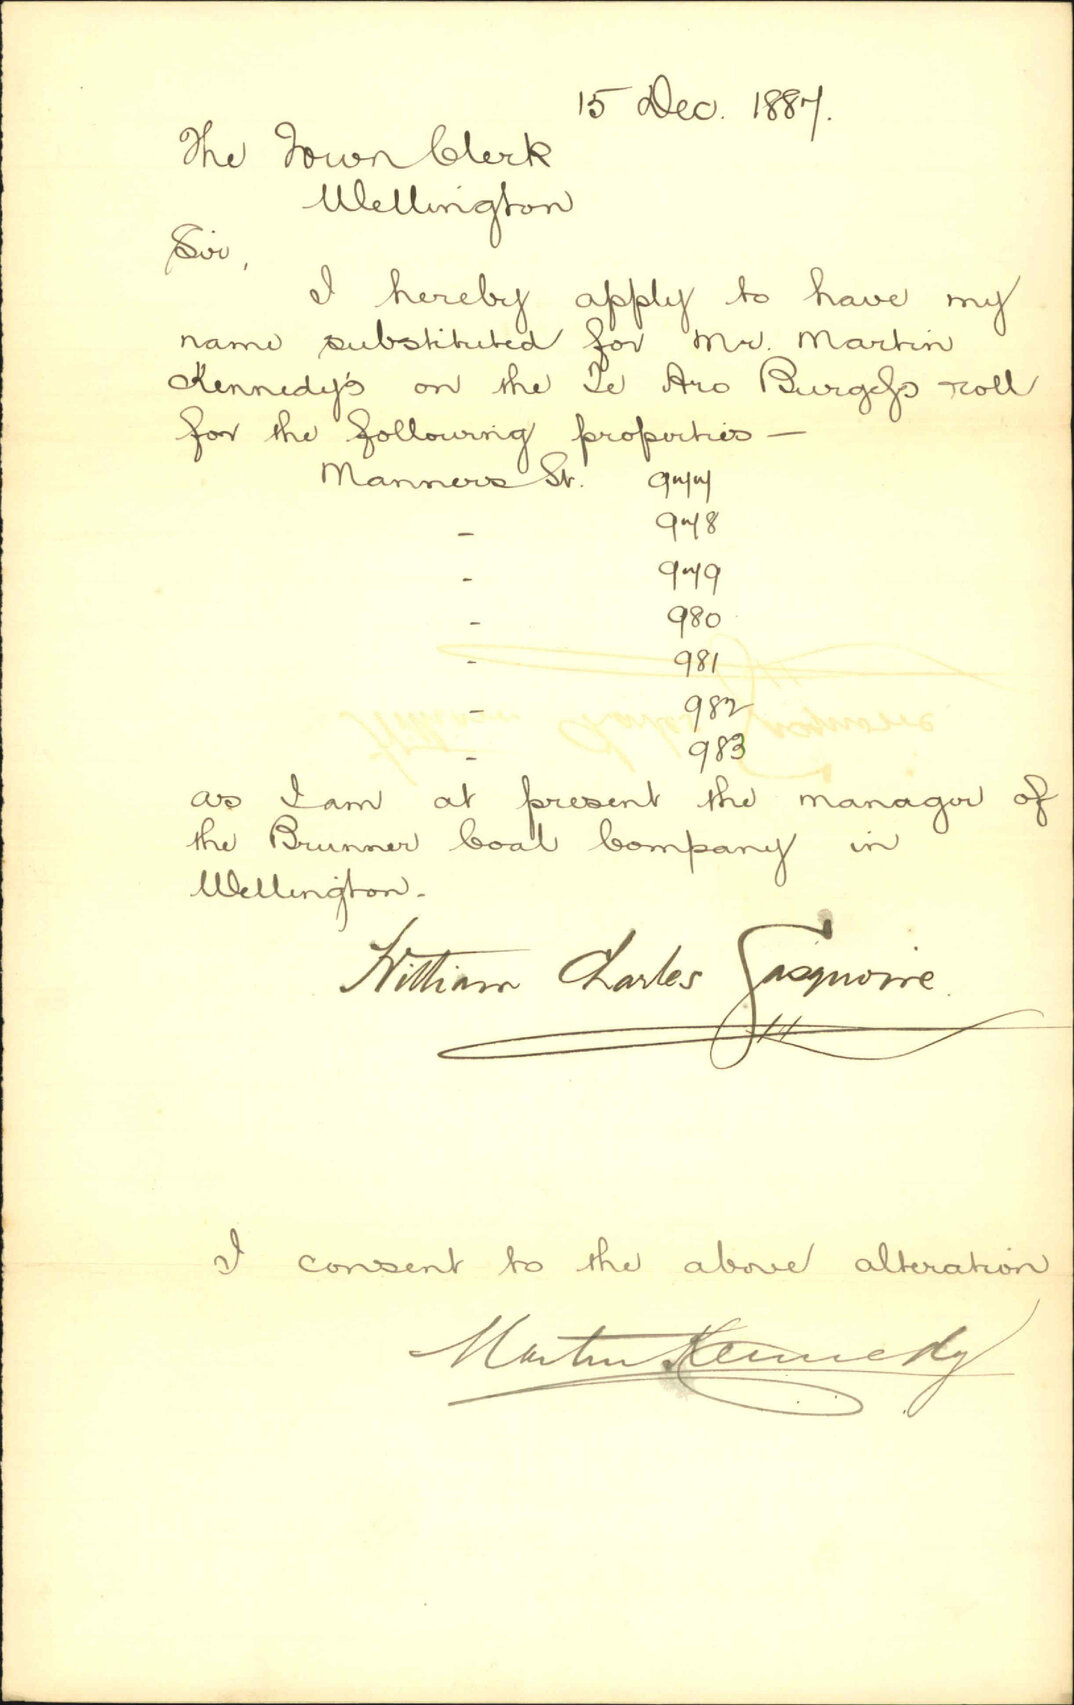 15 Dec. 1887.
The Town Clerk
Wellington
Sir,
I hereby apply to have my
name substituted for Mr. Martin
Kennedy's on the Te Aro Burgess roll
for the following properties —
Manners St. 977
- 978
- 979
- 980
- 981
- 982
- 983
as I am at present the manager of
the Brunner Coal Company in
Wellington.
William Charles Gasquoine
I consent to the above alteration
Martin Kennedy